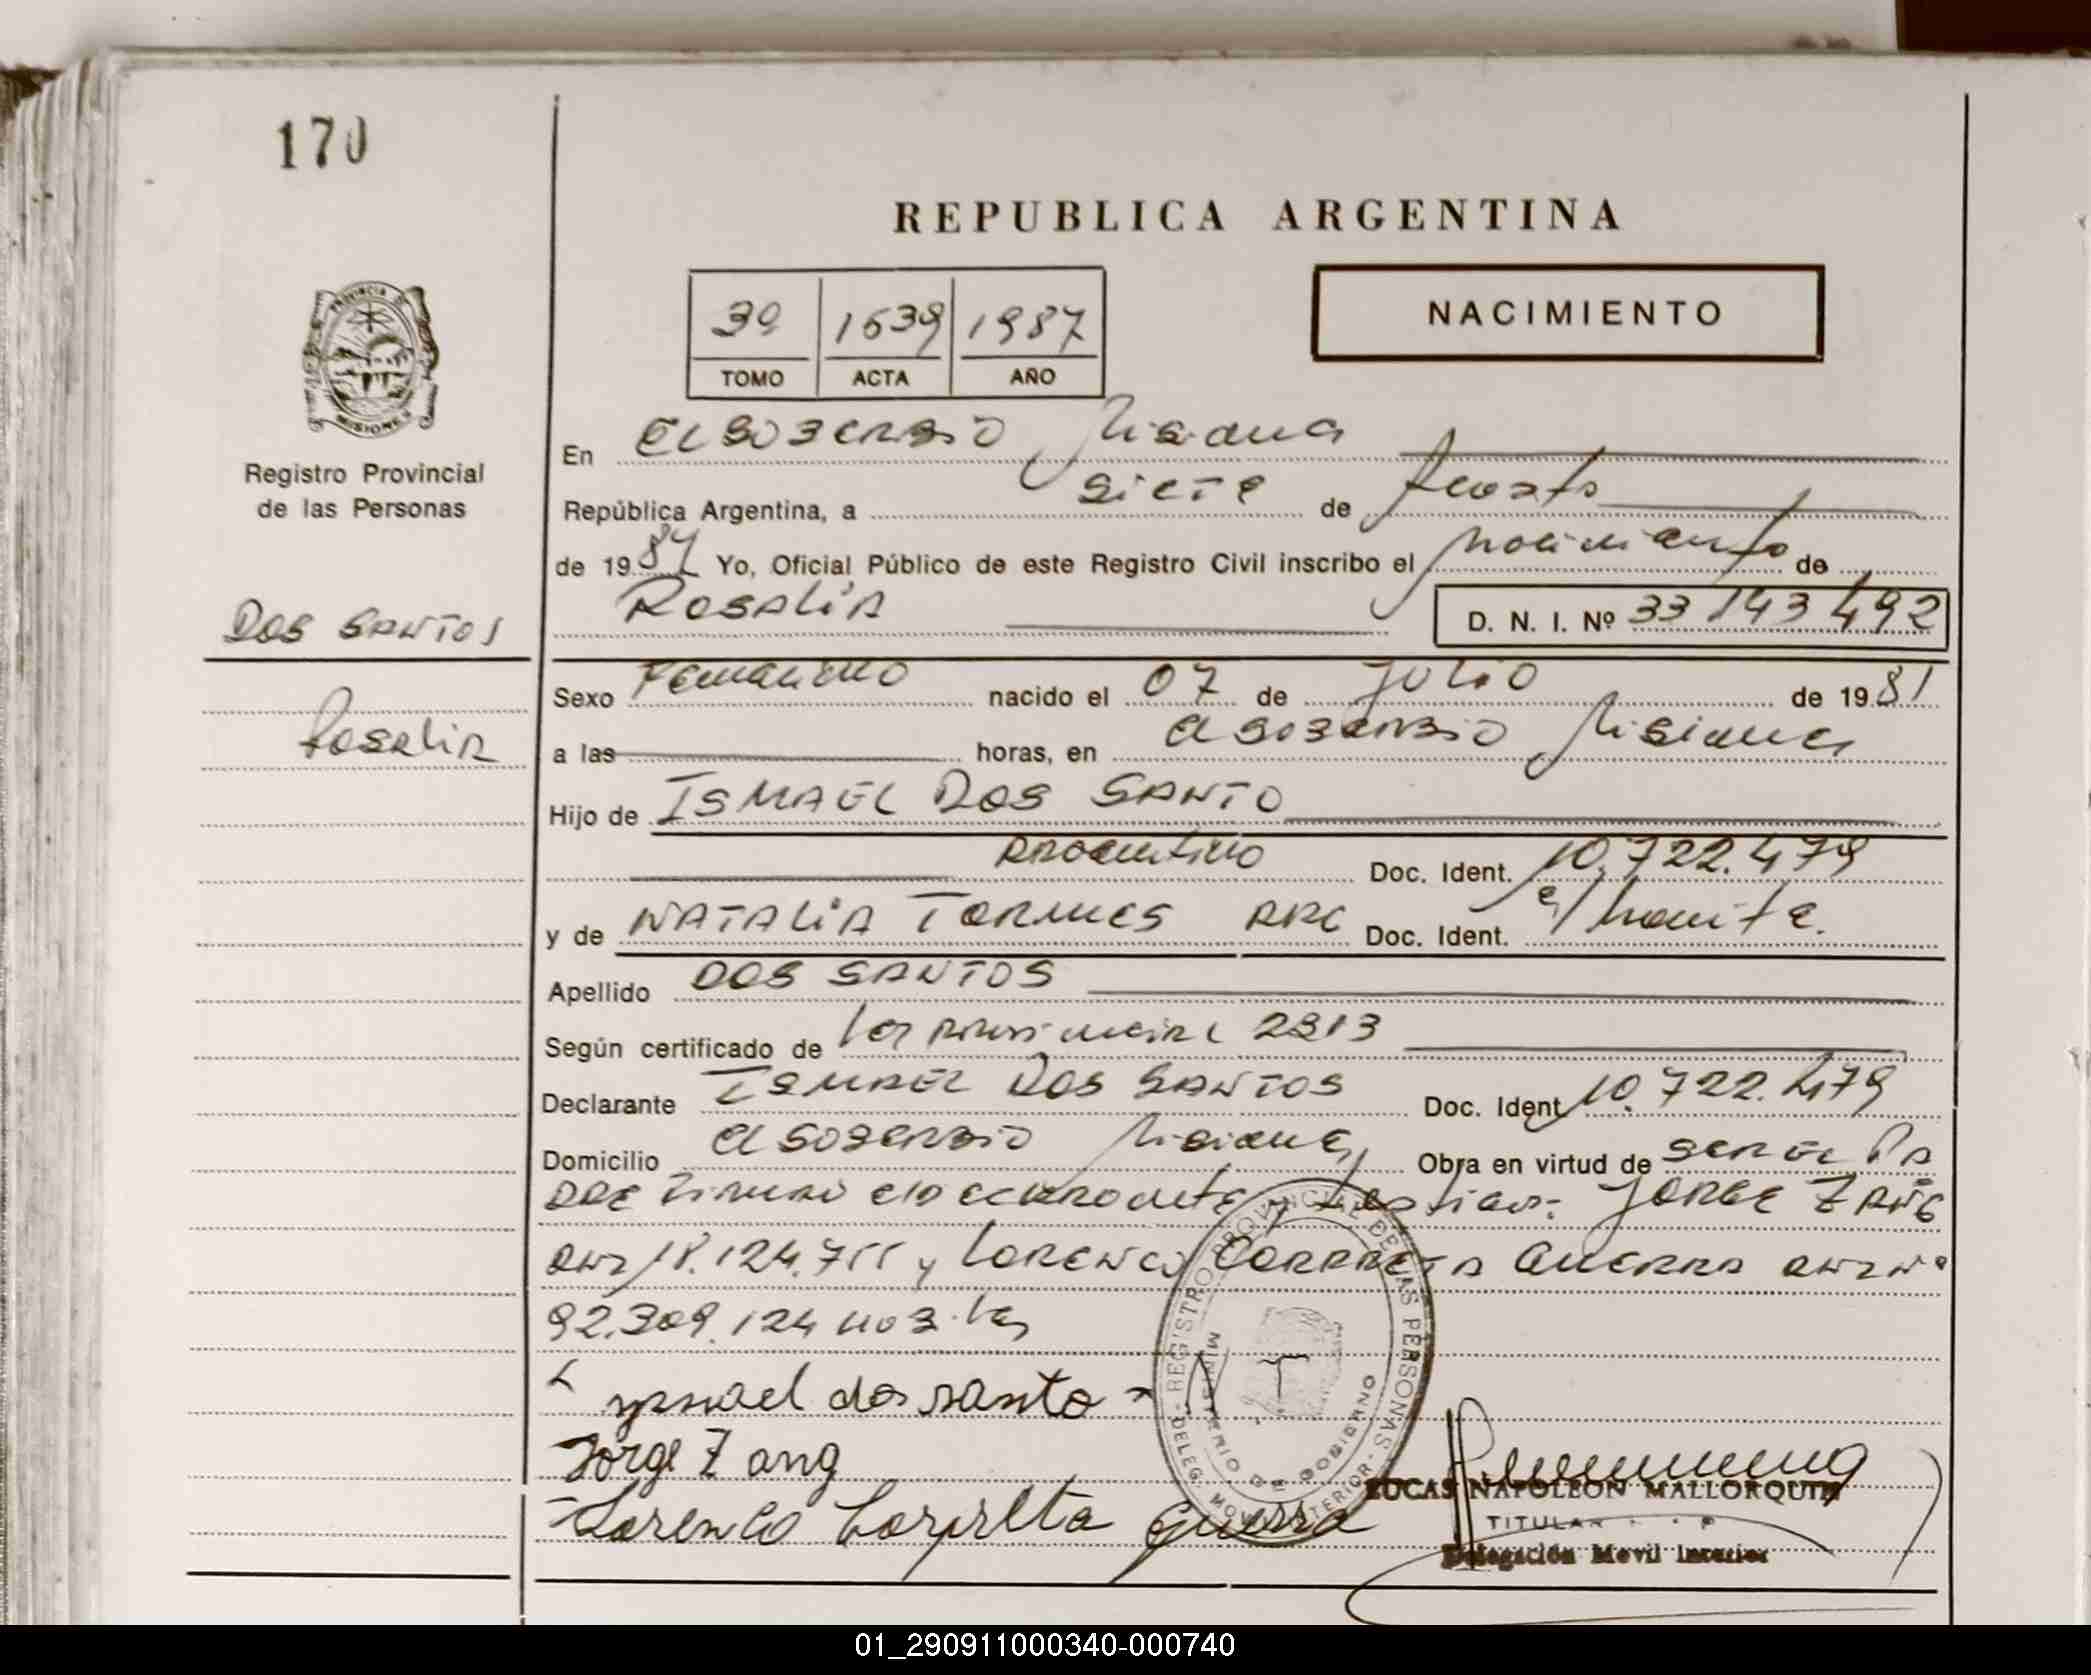 170
REPUBLICA ARGENTINA
3º 1639 1987
TOMO ACTA AÑO
NACIMIENTO
PROVINCIA DE MISIONES
Registro Provincial
de las Personas
DOS SANTOS
Rosalia
En El Soberbio Misiones
República Argentina, a siete de Agosto
de 1987 Yo, Oficial Público de este Registro Civil inscribo el nacimiento de
Rosalia
D. N. I. Nº 33 143 492
Sexo Femenino nacido el 07 de Julio de 1981
a las horas, en El Soberbio Misiones
Hijo de ISMAEL DOS SANTO
Argentino Doc. Ident. 10.722.479
y de NATALIA ARG Doc. Ident.
Apellido DOS SANTOS
Según certificado de Ley provincial 2313
Declarante ISMAEL DOS SANTOS Doc. Ident 10.722.479
Domicilio El Soberbio Misiones Obra en virtud de SER EL PA
DRE Firmando el declarante y testigos: JORGE
18.124.755 y LORENZO CORREIA GUERRA DNI Nº
92.309.124
ysmael dos santo
Jorge Zang
Lorenzo Guerra
REGISTRO PROVINCIAL DE LAS PERSONAS
MINISTERIO DE GOBIERNO
DELEG. MOVIL INTERIOR
LUCAS NAPOLEON MALLORQUIN
TITULAR
Delegación Movil Interior
01_290911000340-000740